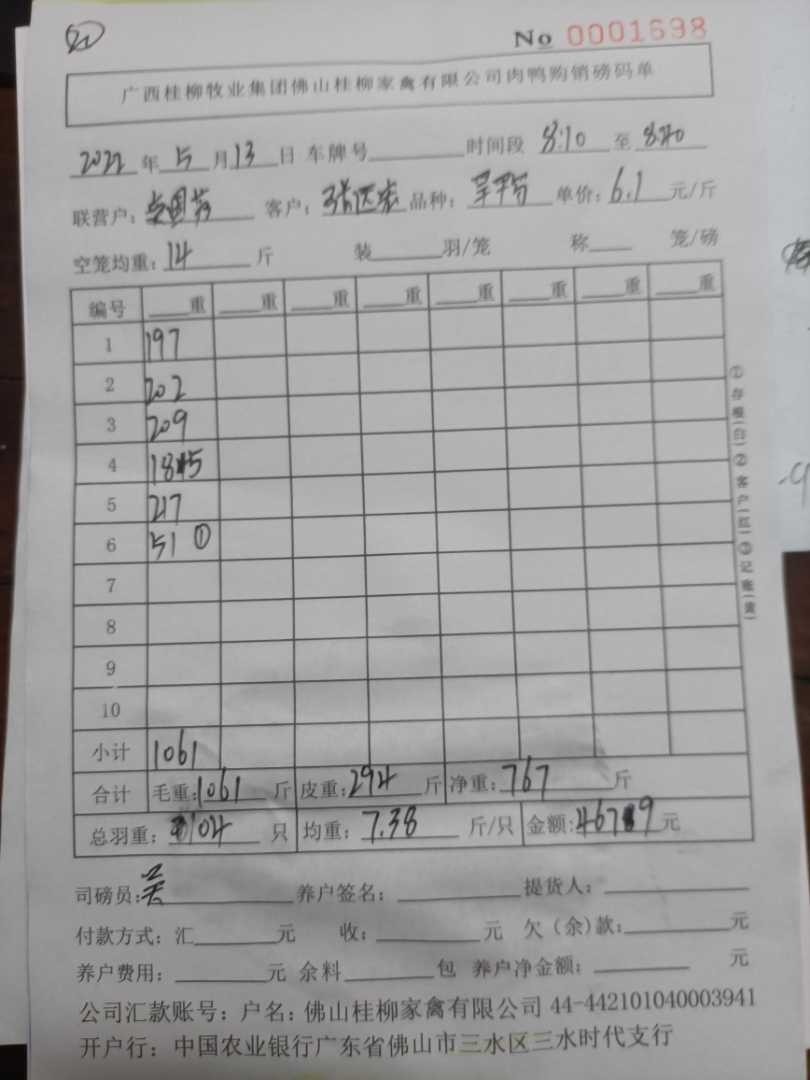 21
No 0001698
广西桂柳牧业集团佛山桂柳家禽有限公司肉鸭购销磅码单
2022年5月13日 车牌号 时间段 8:10 至 8:20
联营户: 客户: 品种: 单价: 6.1 元/斤
空笼均重: 14 斤 装 羽/笼 称 笼/磅
编号 重 重 重 重 重 重 重 重
1 197
2 202
3 209
4 185
5 217
6 51 ①
7
8
9
10
小计 1061
合计 毛重: 1061 斤 皮重: 294 斤 净重: 767 斤
总羽重: 104 只 均重: 7.38 斤/只 金额: 4679 元
司磅员: 吴 养户签名: 提货人:
付款方式: 汇 元 收: 元 欠(余)款: 元
养户费用: 元 余料 包 养户净金额: 元
公司汇款账号: 户名: 佛山桂柳家禽有限公司 44-442101040003941
开户行: 中国农业银行广东省佛山市三水区三水时代支行
①存根(白)②客户(红)③记账(黄)